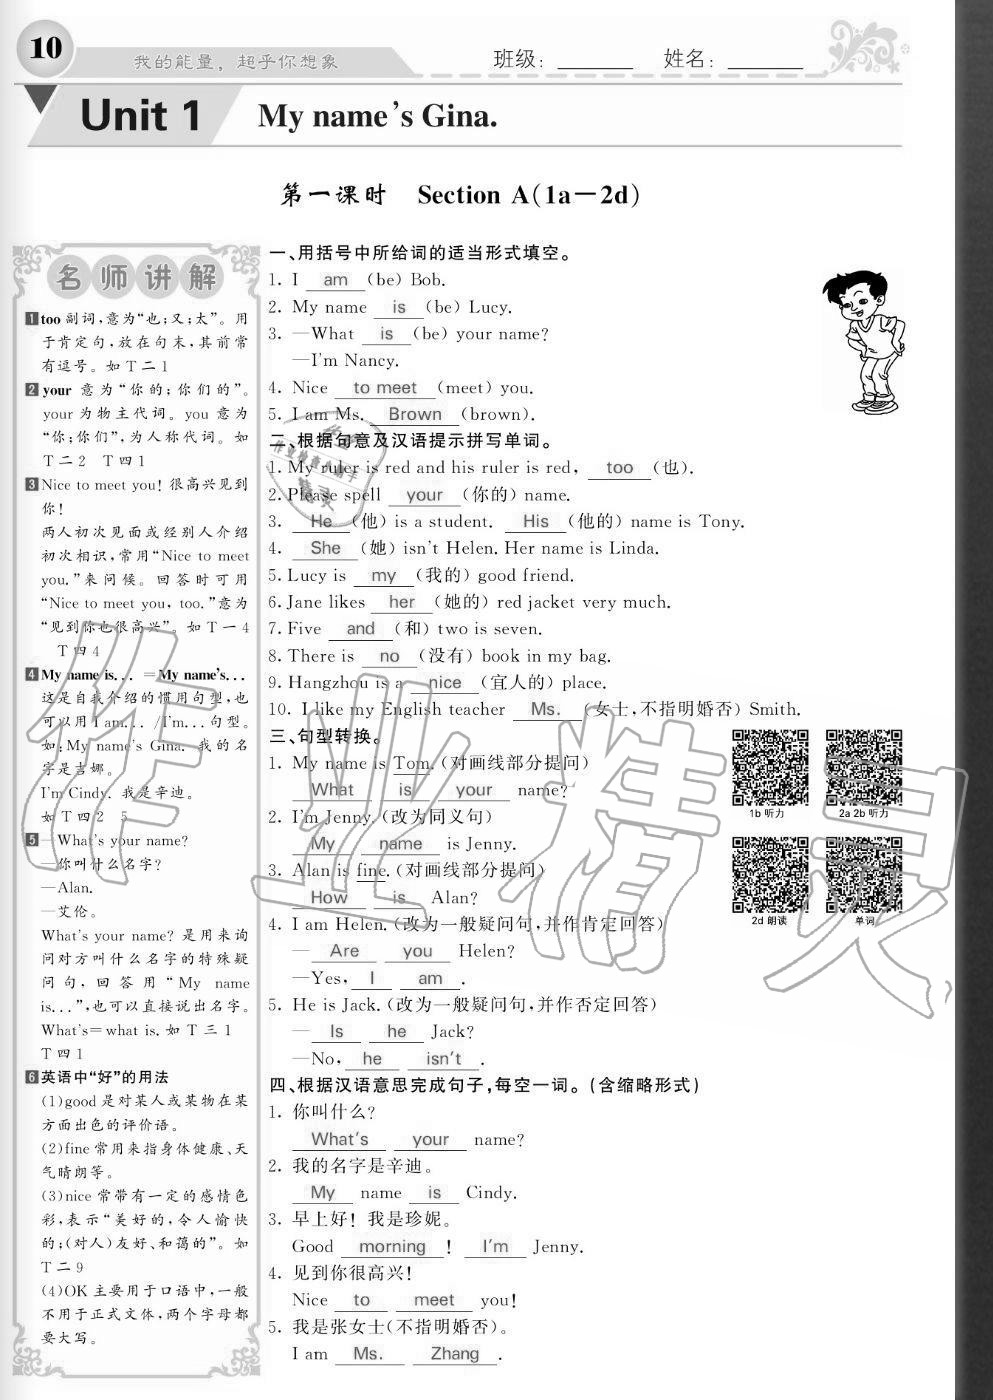 10
我的能量，超乎你想象
班级：_______ 姓名：_______
Unit 1 My name's Gina.
第一课时 Section A(1a－2d)
名师讲解
1 too 副词，意为“也；又；太”。用
于肯定句，放在句末，其前常
有逗号。如 T 二 1
2 your 意为“你的；你们的”。
your 为物主代词。you 意为
“你；你们”，为人称代词。如
T 二 2 T 四 1
3 Nice to meet you! 很高兴见到
你！
两人初次见面或经别人介绍
初次相识，常用“Nice to meet
you.”来问候。回答时可用
“Nice to meet you, too.”意为
“见到你也很高兴”。如 T 一 4
T 四 4
4 My name is... ＝My name's...
这是自我介绍的惯用句型，也
可以用 I am... /I'm... 句型。
如：My name's Gina. 我的名
字是吉娜。
I'm Cindy. 我是辛迪。
如 T 四 2 5
5 —What's your name?
—你叫什么名字？
—Alan.
—艾伦。
What's your name? 是用来询
问对方叫什么名字的特殊疑
问句，回答用“My name
is...”，也可以直接说出名字。
What's＝what is. 如 T 三 1
T 四 1
6 英语中“好”的用法
(1)good 是对某人或某物在某
方面出色的评价语。
(2)fine 常用来指身体健康、天
气晴朗等。
(3)nice 常带有一定的感情色
彩，表示“美好的，令人愉快
的；(对人)友好、和蔼的”。如
T 二 9
(4)OK 主要用于口语中，一般
不用于正式文体，两个字母都
要大写。
一、用括号中所给词的适当形式填空。
1. I am (be) Bob.
2. My name is (be) Lucy.
3. —What is (be) your name?
—I'm Nancy.
4. Nice to meet (meet) you.
5. I am Ms. Brown (brown).
二、根据句意及汉语提示拼写单词。
1. My ruler is red and his ruler is red, too (也).
2. Please spell your (你的) name.
3. He (他) is a student. His (他的) name is Tony.
4. She (她) isn't Helen. Her name is Linda.
5. Lucy is my (我的) good friend.
6. Jane likes her (她的) red jacket very much.
7. Five and (和) two is seven.
8. There is no (没有) book in my bag.
9. Hangzhou is a nice (宜人的) place.
10. I like my English teacher Ms. (女士，不指明婚否) Smith.
三、句型转换。
1. My name is Tom. (对画线部分提问)
What is your name?
2. I'm Jenny. (改为同义句)
My name is Jenny.
3. Alan is fine. (对画线部分提问)
How is Alan?
4. I am Helen. (改为一般疑问句，并作肯定回答)
— Are you Helen?
—Yes, I am .
5. He is Jack. (改为一般疑问句，并作否定回答)
— Is he Jack?
—No, he isn't .
1b 听力
2a 2b 听力
2d 朗读
单词
四、根据汉语意思完成句子，每空一词。(含缩略形式)
1. 你叫什么？
What's your name?
2. 我的名字是辛迪。
My name is Cindy.
3. 早上好！我是珍妮。
Good morning ! I'm Jenny.
4. 见到你很高兴！
Nice to meet you!
5. 我是张女士(不指明婚否)。
I am Ms. Zhang .
作业精灵